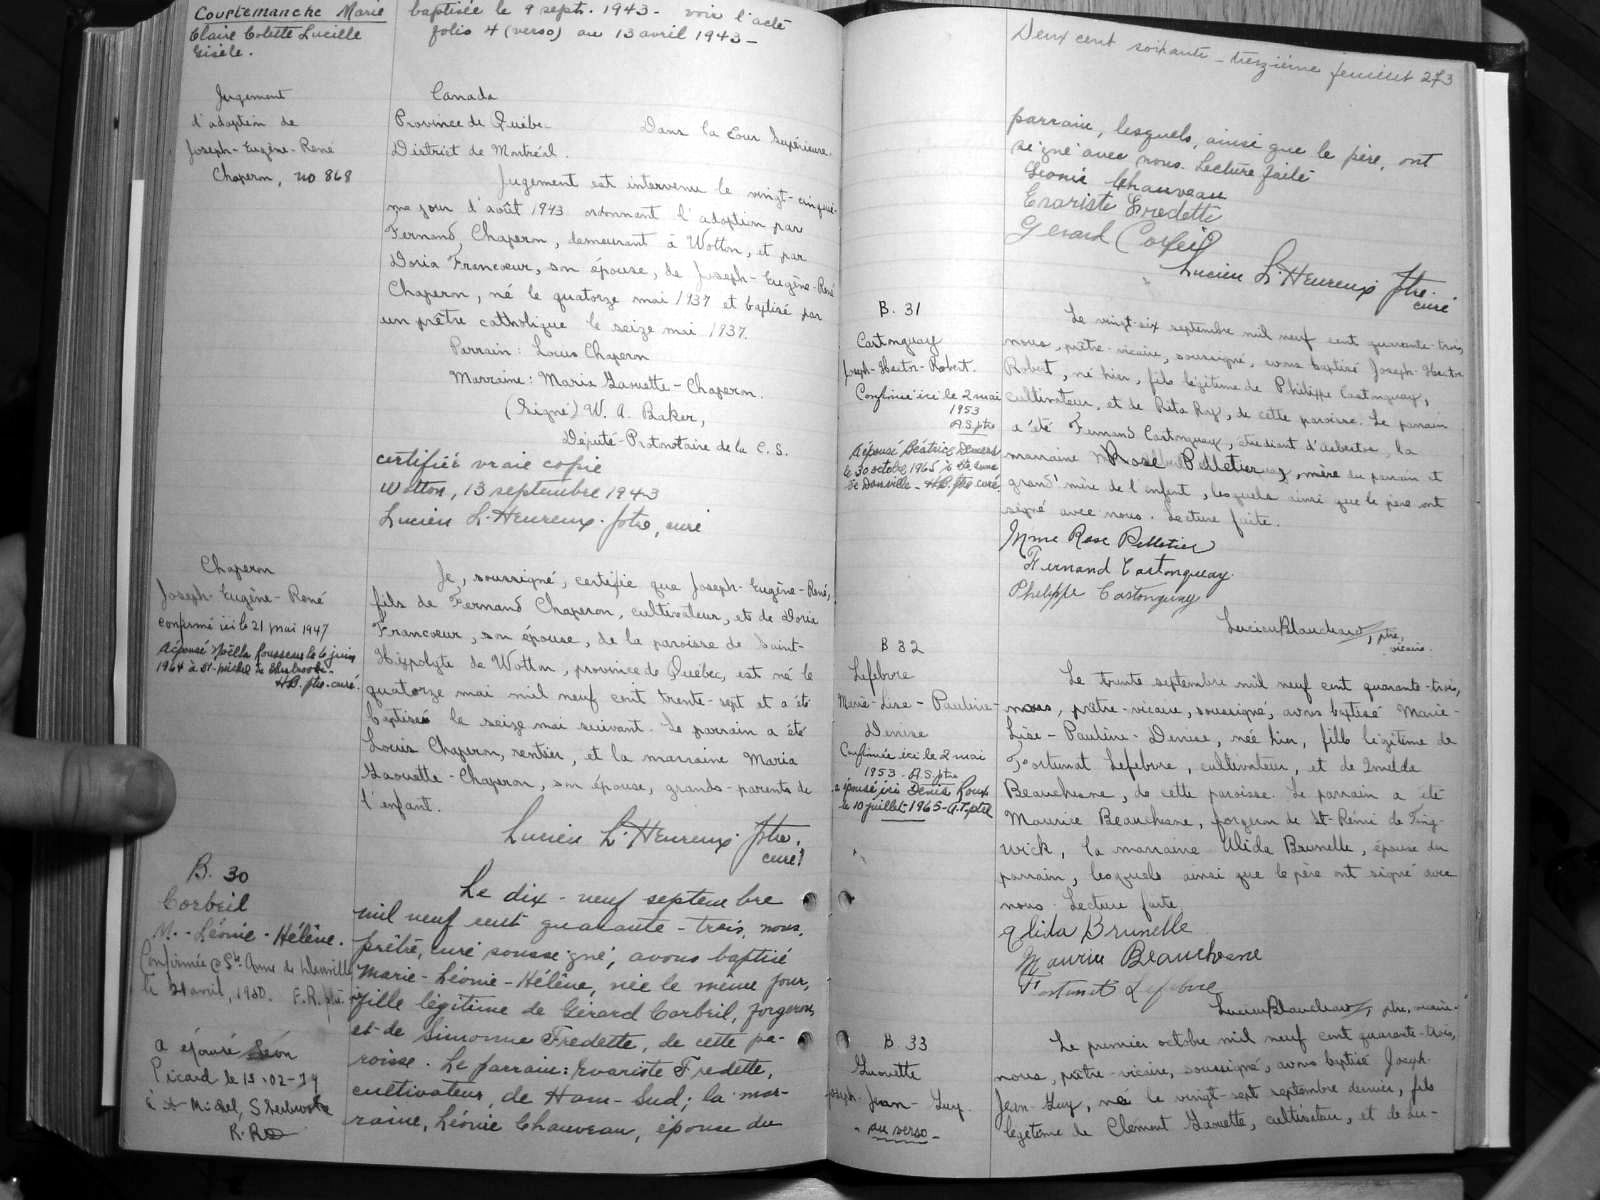 Courtemanche Marie
Claire Colette Lucille
Gisèle.
baptisée le 9 sept. 1943 - voir l'acte
folio 4 (verso) au 13 avril 1943 -
Jugement
d'adoption de
Joseph-Eugène-René
Chaperon, no 868
Canada
Province de Québec
District de Montréal.
Dans la Cour Supérieure.
Jugement est intervenu le vingt-cinquiè-
me jour d'août 1943 ordonnant l'adoption par
Fernand Chaperon, demeurant à Wotton, et par
Doria Francoeur, son épouse, de Joseph-Eugène-René
Chaperon, né le quatorze mai 1937 et baptisé par
un prêtre catholique le seize mai 1937.
Parrain: Louis Chaperon
Marraine: Maria Gaouette-Chaperon.
(Signé) W. A. Baker,
Député-Protonotaire de la C. S.
certifiée vraie copie
Wotton, 13 septembre 1943
Lucien L'Heureux ptre, curé
Chaperon
Joseph-Eugène-René
confirmé ici le 21 mai 1947
A épousé Noëlla Rousseau le 6 juin
1964 à St-Michel de Sherbrooke -
H.B. ptre-curé.
Je, soussigné, certifie que Joseph-Eugène-René,
fils de Fernand Chaperon, cultivateur, et de Doria
Francoeur, son épouse, de la paroisse de Saint-
Hippolyte de Wotton, province de Québec, est né le
quatorze mai mil neuf cent trente-sept et a été
baptisé le seize mai suivant. Le parrain a été
Louis Chaperon, rentier, et la marraine Maria
Gaouette-Chaperon, son épouse, grands-parents de
l'enfant.
Lucien L'Heureux ptre.
curé
B. 30
Corbeil
M.-Léonie-Hélène.
Confirmée @ Ste Anne de Danville
le 21 avril, 1950. F.R. ptre
a épousé Léon
Picard le 15-02-79
à St-Michel, Sherbrooke
Le dix-neuf septembre
mil neuf cent quarante-trois, nous,
prêtre, curé soussigné, avons baptisé
Marie-Léonie-Hélène, née le même jour,
fille légitime de Gérard Corbeil, forgeron,
et de Simonne Fredette, de cette pa-
roisse. Le parrain: Evariste Fredette,
cultivateur, de Ham-Sud; la mar-
raine, Léonie Chauveau, épouse du
Deux cent soixante-treizième feuillet 273
parrain, lesquels, ainsi que le père, ont
signé avec nous. Lecture faite
Léonie Chauveau
Evariste Fredette
Gérard Corbeil
Lucien L'Heureux ptre.
curé
B. 31
Castonguay
Joseph-Hector-Robert.
Confirmé ici le 2 mai
1953
A.S. ptre
A épousé Béatrice Demers
le 30 octobre 1965 à Ste Anne
de Danville - H.B. ptre curé.
Le vingt-six septembre mil neuf cent quarante-trois,
nous, prêtre-vicaire, soussigné, avons baptisé Joseph-Hector
Robert, né hier, fils légitime de Philippe Castonguay,
cultivateur, et de Rita Roy, de cette paroisse. Le parrain
a été Fernand Castonguay, étudiant d'asbestos, la
marraine Rose Pelletier, mère du parrain et
grand'mère de l'enfant, lesquels ainsi que le père ont
signé avec nous. Lecture faite.
Mme Rose Pelletier
Fernand Castonguay
Philippe Castonguay
Lucien Blanchard, ptre,
vicaire.
B 32
Lefebvre
Marie-Lise-Pauline-
Denise
Confirmée ici le 2 mai
1953 - A.S. ptre
a épousé ici Denis Roux
le 10 juillet 1965 -
Le trente septembre mil neuf cent quarante-trois,
nous, prêtre-vicaire, soussigné, avons baptisé Marie-
Lise-Pauline-Denise, née hier, fille légitime de
Fortunat Lefebvre, cultivateur, et de Imelda
Beauchesne, de cette paroisse. Le parrain a été
Maurice Beauchesne, forgeron de St-Rémi de Ting-
wick, la marraine Alida Brunelle, épouse du
parrain, lesquels ainsi que le père ont signé avec
nous. Lecture faite.
Alida Brunelle
Maurice Beauchesne
Fortunat Lefebvre
Lucien Blanchard, ptre, vicaire.
B. 33
Gaouette
Joseph-Jean-Guy.
- au verso -
Le premier octobre mil neuf cent quarante-trois,
nous, prêtre-vicaire, soussigné, avons baptisé Joseph-
Jean-Guy, né le vingt-sept septembre dernier, fils
légitime de Clément Gaouette, cultivateur, et de Lu-